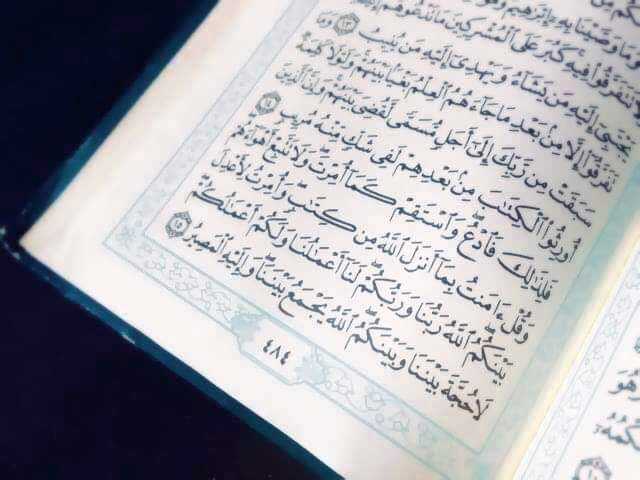 وَمَا وَصَّيْنَا بِهِۦٓ إِبْرَٰهِيمَ
تَتَفَرَّقُوا۟ فِيهِ كَبُرَ عَلَى ٱلْمُشْرِكِينَ مَا تَدْعُوهُمْ
يَجْتَبِىٓ إِلَيْهِ مَن يَشَآءُ وَيَهْدِىٓ إِلَيْهِ مَن يُنِيبُ ١٣ وَمَا
تَفَرَّقُوٓا۟ إِلَّا مِنۢ بَعْدِ مَا جَآءَهُمُ ٱلْعِلْمُ بَغْيًۢا بَيْنَهُمْ وَلَوْلَا كَلِمَةٌ
سَبَقَتْ مِن رَّبِّكَ إِلَىٰٓ أَجَلٍ مُّسَمًّى لَّقُضِىَ بَيْنَهُمْ وَإِنَّ ٱلَّذِينَ
أُورِثُوا۟ ٱلْكِتَٰبَ مِنۢ بَعْدِهِمْ لَفِى شَكٍّ مِّنْهُ مُرِيبٍ ١٤
فَلِذَٰلِكَ فَٱدْعُ وَٱسْتَقِمْ كَمَآ أُمِرْتَ وَلَا تَتَّبِعْ أَهْوَآءَهُمْ
وَقُلْ ءَامَنتُ بِمَآ أَنزَلَ ٱللَّهُ مِن كِتَٰبٍ وَأُمِرْتُ لِأَعْدِلَ
بَيْنَكُمُ ٱللَّهُ رَبُّنَا وَرَبُّكُمْ لَنَآ أَعْمَٰلُنَا وَلَكُمْ أَعْمَٰلُكُمْ
لَا حُجَّةَ بَيْنَنَا وَبَيْنَكُمُ ٱللَّهُ يَجْمَعُ بَيْنَنَا وَإِلَيْهِ ٱلْمَصِيرُ ١٥
٤٨٤
هُوَ